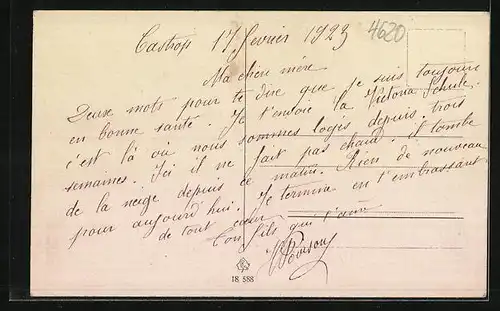 Castrop 17 fevrier 1923
4620
Ma chère mère
Deux mots pour te dire que je suis toujours
en bonne santé Je t'envoie la Victoria Schule
c'est là où nous sommes logés depuis trois
semaines. Ici il ne fait pas chaud. il tombe
de la neige depuis ce matin. Rien de nouveau
pour aujourd'hui. Je termine en t'embrassant
de tout cœur
Ton fils qui t'aime
18 588